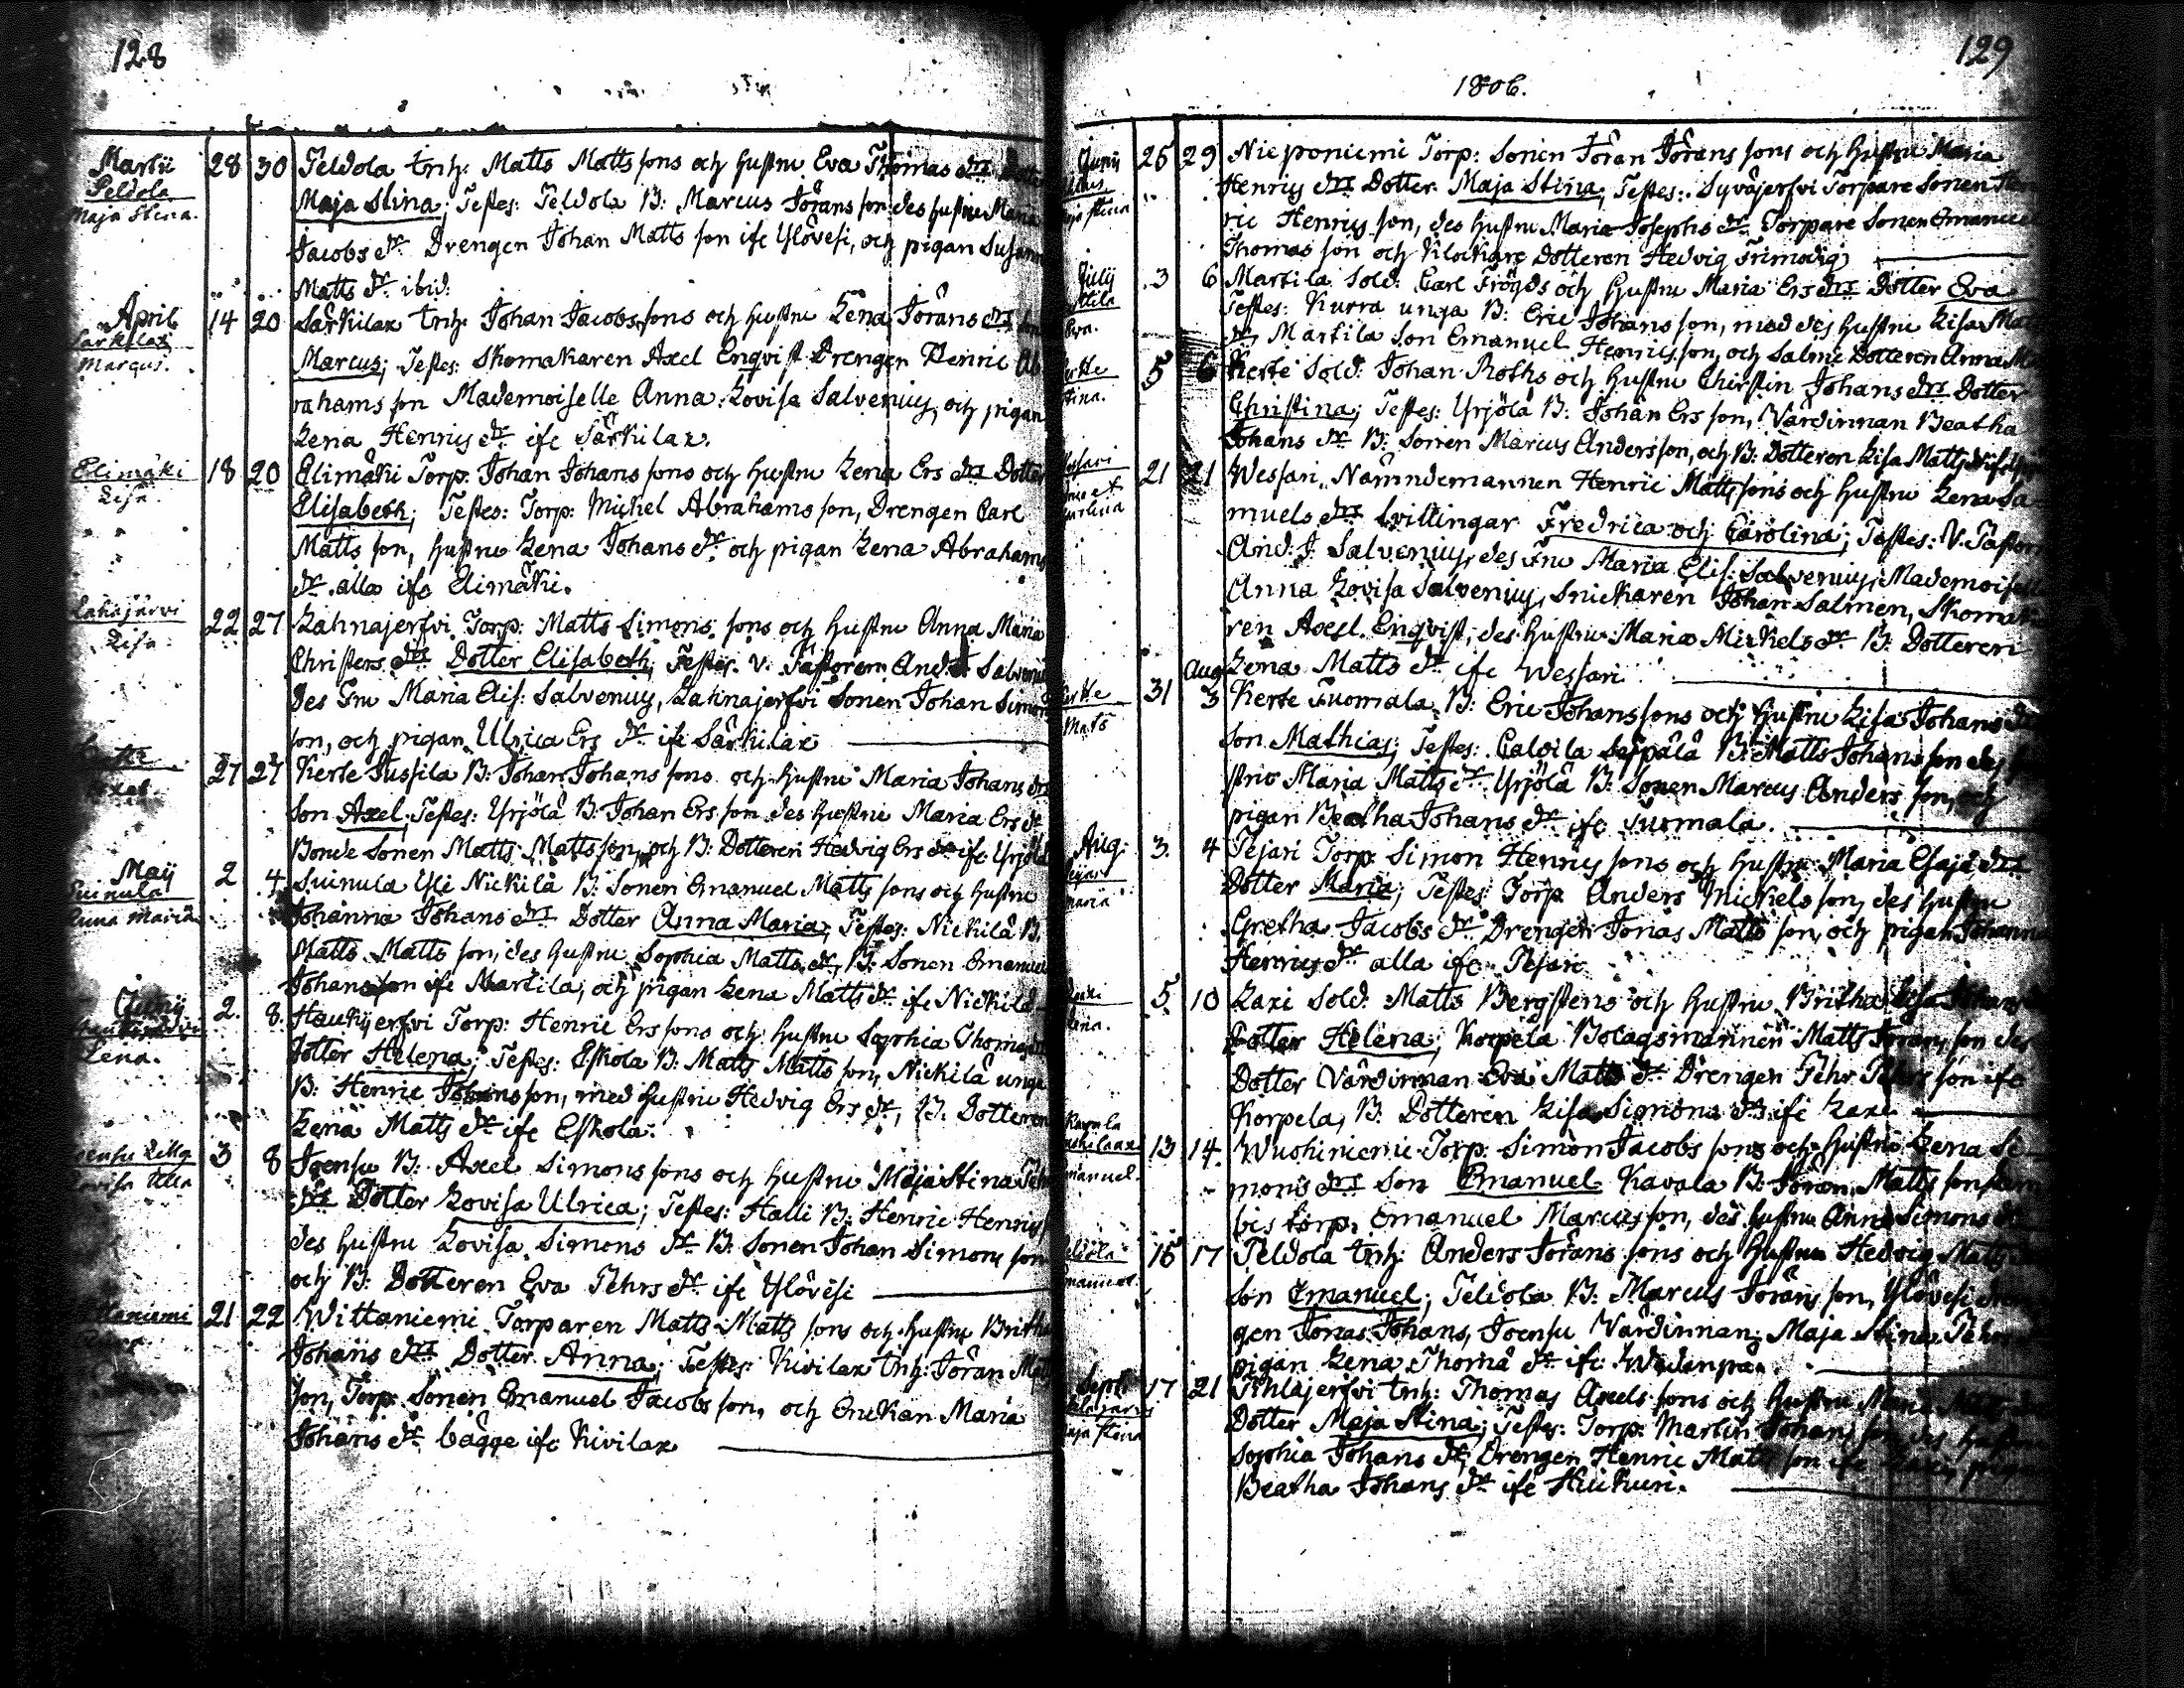 128
Martii 28 30 Peldola trh: Matts Matts sons och hustru Eva Thomas drs Dotter
Peldola
Maja Stina. Maja Stina; Testes: Peldola B: Marcus Jörans son des hustru Maria
Jacobs dr Drengen Johan Matts son ife Ylövesi, och pigan Susanna
Matts dr ibid:
April 14 20 Särkilax trh: Johan Jacobs sons och hustru Lena Jörans drs Son
Särkilax
Marcus. Marcus; Testes: Skomakaren Axel Enqvist Drengen Henric Ab
rahams son Mademoiselle Anna Lovisa Salvenius, och pigan
Lena Henrics dr ife Särkilax.
Elimäki 18 20 Elimäki Torp: Johan Johans sons och hustru Lena Ers drs Dotter
Lisa. Elisabeth; Testes: Torp: Mickel Abrahams son, Drengen Carl
Matts son, hustru Lena Johans dr och pigan Lena Abrahams
dr alla ife Elimäki.
Lahnajärvi 22 27 Lahnajerfvi Torp: Matts Simons sons och hustru Anna Maria
Lisa. Christers drs Dotter Elisabeth; Testes: V. Pastoren And: J. Salvenius
des Fru Maria Elis: Salvenius, Lahnajerfvi Sonen Johan Simons
son, och pigan Ulrica Ers dr ife Särkilax
27 27 Kerte Jussila B: Johan Johans sons och hustru Maria Johans drs
Axel. Son Axel; Testes: Yrjölä B: Johan Ers son des hustru Maria Ers dr
Bonde Sonen Matts Matts son, och B: Dotteren Hedvig Ers dr ife Yrjölä
Maij 2 4 Suinula Yli Nickilä B: Sonen Emanuel Matts sons och hustru
Suinula
Anna Maria Johanna Johans drs Dotter Anna Maria; Testes: Nickilä B.
Matts Matts son, des hustru Sophia Matts dr, B: Sonen Emanuel
Johans son ife Martila, och pigan Lena Matts dr ife Nickilä
Junij 2. 8. Haukijerfvi Torp: Henric Ers sons och hustru Sophia Thomas
Lena. Dotter Helena; Testes: Eskola B: Matts Matts son, Nickilä unga
B: Henric Johans son, med hustru Hedvig Ers dr, B: Dotteren
Lena Matts dr ife Eskola.
3 8 Joensu B: Axel Simons sons och hustru Maja Stina Pehrs
Lovisa Ulla drs Dotter Lovisa Ulrica; Testes: Halli B: Henric Henrics
des hustru Lovisa Simons dr B: Sonen Johan Simons son
och B: Dotteren Eva Pehrs dr ife Ylövesi
21 22 Wittaniemi Torparen Matts Matts sons och hustru Britha
Johans drs Dotter Anna; Testes: Kivilax trh: Jöran Matts
son, Torp: Sonen Emanuel Jacobs son, och Enckan Maria
Johans dr bägge ife Kivilax
129
1806.
Junii 25 29 Nieponiemi Torp: Sonen Jöran Jörans sons och hustru Maria
Maja Stina Henrics drs Dotter Maja Stina; Testes: Syväjerfvi Torpare Sonen Hen
ric Henrics son, des hustru Maria Josephs dr Torpare Sonen Emanuel
Thomas son och Klockare Dotteren Hedvig Frimodig
Julij 3 6 Martila Sold: Carl Frögds och hustru Maria Ers drs Dotter Eva
Eva. Testes: Kurra unga B: Eric Johans son, med des hustru Lisa Matts
dr, Martila Son Emanuel Henrics son, och Salme Dotteren Anna
5 6 Kerte Sold: Johan Roths och hustru Chirstin Johans drs Dotter
Christina; Testes: Yrjölä B: Johan Ers son, Värdinnan Beatha
Johans dr B: Sonen Marcus Anders son, och B: Dotteren Lisa Matts dr ife
21 21 Wessari Nämndemannen Henric Matts sons och hustru Lena Sa
muels drs tvillingar Fredrica och Carolina; Testes: V. Pastoren
And: J: Salvenius, des Fru Maria Elis: Salvenius, Mademoiselle
Anna Lovisa Salvenius, Snickaren Johan Salmen, Skomaka
ren Axel Enqvist, des hustru Maria Mickels dr B: Dotteren
Aug Lena Matts dr ife Wessari
31 3 Kerte Tuomala B: Eric Johans sons och hustru Lisa Johans drs
Mats Son Mathias; Testes: Calvila Seppälä B: Matts Johans son des hu
stru Maria Matts dr Yrjölä B: Sonen Marcus Anders son, och
pigan Beatha Johans dr ife Tuomala.
Aug: 3. 4 Pejari Torp: Simon Henrics sons och hustru Maria Esajæ drs
Maria Dotter Maria; Testes: Torp: Anders Mickels son, des hustru
Gretha Jacobs dr Drengen Jonas Matts son, och pigan Johanna
Henrics dr alla ife Pejari
5. 10 Laxi Sold: Matts Bergstens och hustru Britha Lisa Johans
Dotter Helena; Korpela Bolagsmannen Matts Jörans son des
Dotter Värdinnan Eva Matts dr Drengen Pehr Pehrs son ife
Korpela, B: Dotteren Lisa Simons dr ife Laxi
13 14. Wuohiniemi Torp: Simon Jacobs sons och hustru Lena Si
mons drs Son Emanuel Kavala B: Jöran Matts son
Torp: Emanuel Marcus son, des hustru Anna Simons dr
16 17 Peldola trh: Anders Jörans sons och hustru Hedvig Matts
Son Emanuel; Peldola B: Marcus Jörans son, Ylövesi dren
gen Jonas Johans, Joensu Värdinnan Maja Stina Pehrs
pigan Lena Thomæ dr ife
Sept: 17 21 Pihlajerfvi trh: Thomas Axels sons och hustru
Maja Stina Dotter Maja Stina; Testes: Torp: Martin Johans son des hustru
Sophia Johans dr, Drengen Henric Matts son ife Laxi, pigan
Beatha Johans dr ife Huikuri.